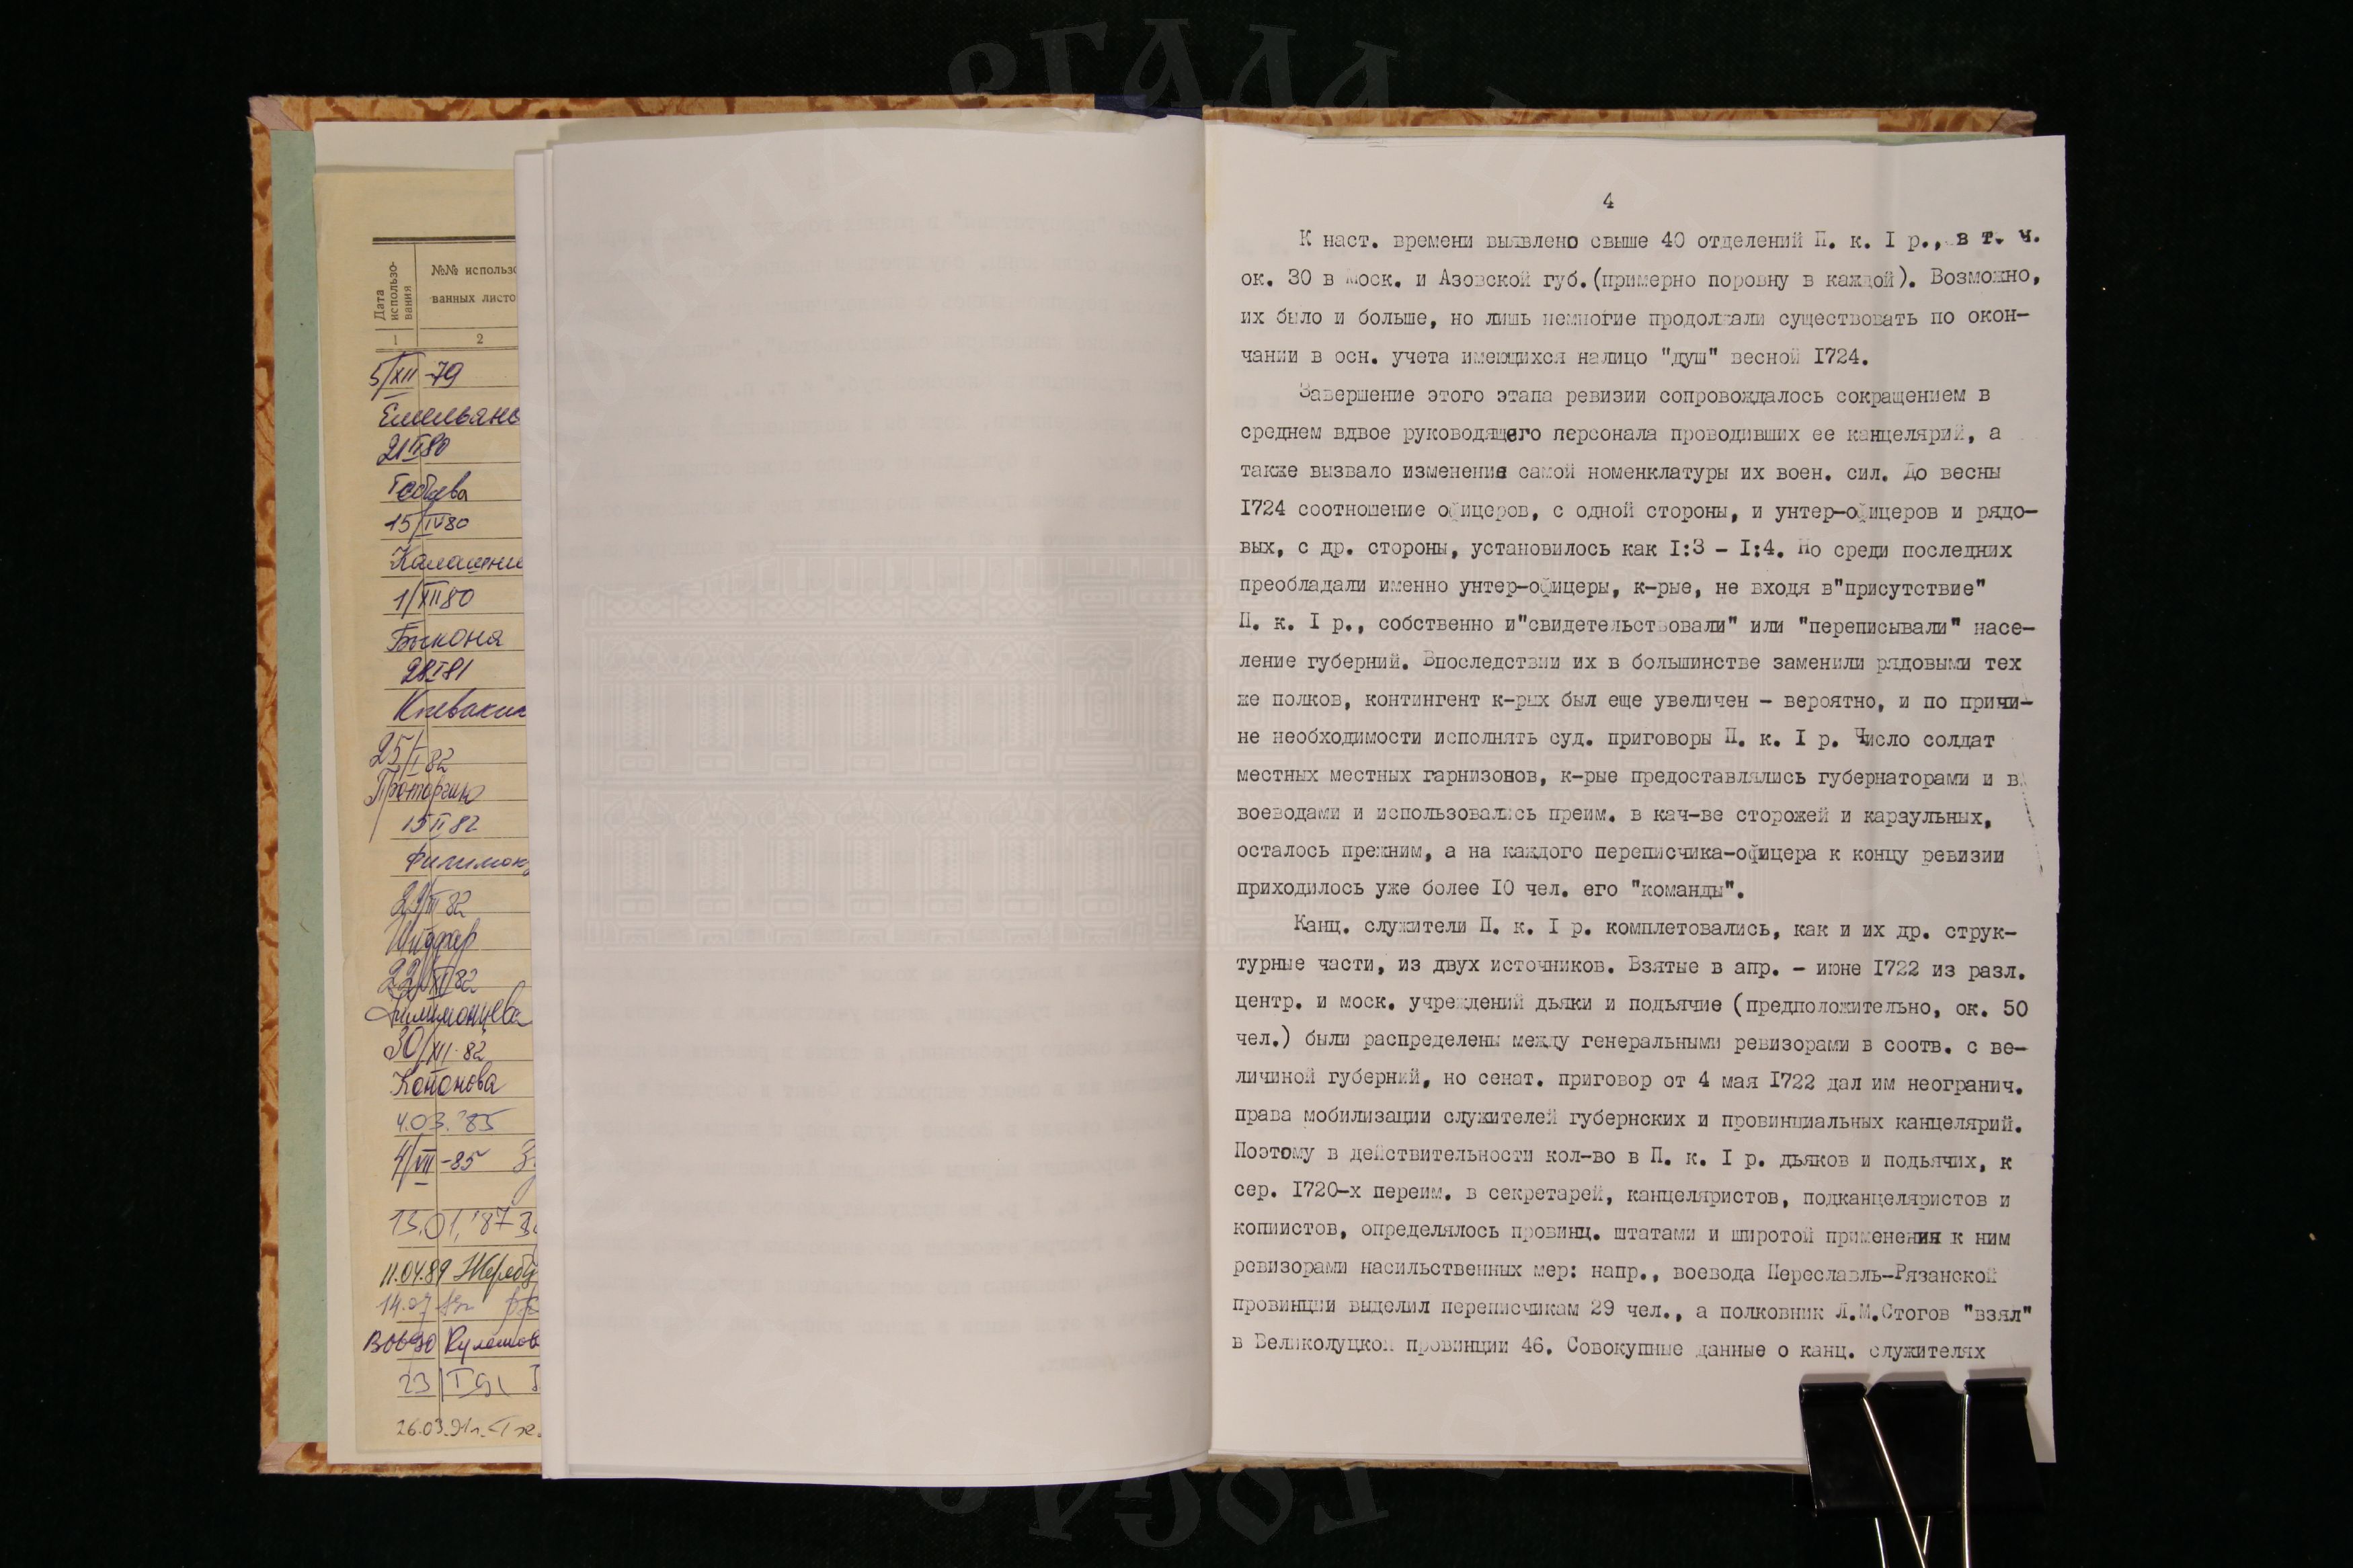 Дата использо-вания
№№ использо
ванных листо
1 2
5/XII-79
21 II 80
15/IV 80
1/XII 80
Быконя
28 I 81
25/I 82
15 II 82
Филимон
22/XII 82
Филимонцева
30/XII-82
Кононова
4.03.'85
4/VII-85
13.01.'87
11.04.89
26.03.91г.
4
К наст. времени выявлено свыше 40 отделений П. к. I р., в т. ч.
ок. 30 в Моск. и Азовской губ.(примерно поровну в каждой). Возможно,
их было и больше, но лишь немногие продолжали существовать по окон-
чании в осн. учета имеющихся налицо "душ" весной 1724.
Завершение этого этапа ревизии сопровождалось сокращением в
среднем вдвое руководящего персонала проводивших ее канцелярий, а
также вызвало изменения самой номенклатуры их воен. сил. До весны
1724 соотношение офицеров, с одной стороны, и унтер-офицеров и рядо-
вых, с др. стороны, установилось как I:3 - I:4. Но среди последних
преобладали именно унтер-офицеры, к-рые, не входя в"присутствие"
П. к. I р., собственно и"свидетельствовали" или "переписывали" насе-
ление губерний. Впоследствии их в большинстве заменили рядовыми тех
же полков, контингент к-рых был еще увеличен - вероятно, и по причи-
не необходимости исполнять суд. приговоры П. к. I р. Число солдат
местных местных гарнизонов, к-рые предоставлялись губернаторами и в
воеводами и использовались преим. в кач-ве сторожей и караульных,
осталось прежним, а на каждого переписчика-офицера к концу ревизии
приходилось уже более 10 чел. его "команды".
Канц. служители П. к. I р. комплетовались, как и их др. струк-
турные части, из двух источников. Взятые в апр. - июне 1722 из разл.
центр. и моск. учреждений дьяки и подьячие (предположительно, ок. 50
чел.) были распределены между генеральными ревизорами в соотв. с ве-
личиной губерний, но сенат. приговор от 4 мая 1722 дал им неогранич.
права мобилизации служителей губернских и провинциальных канцелярий.
Поэтому в действительности кол-во в П. к. I р. дьяков и подьячих, к
сер. 1720-х переим. в секретарей, канцеляристов, подканцеляристов и
копиистов, определялось провинц. штатами и широтой применения к ним
ревизорами насильственных мер: напр., воевода Переславль-Рязанской
провинции выделил переписчикам 29 чел., а полковник Л.М.Стогов "взял"
в Великолуцкой провинции 46. Совокупные данные о канц. служителях